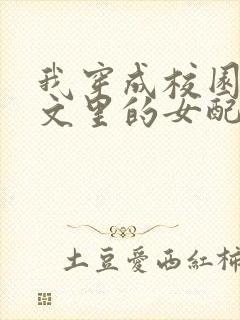 我穿成校园
文里的女配
土豆愛西紅柿